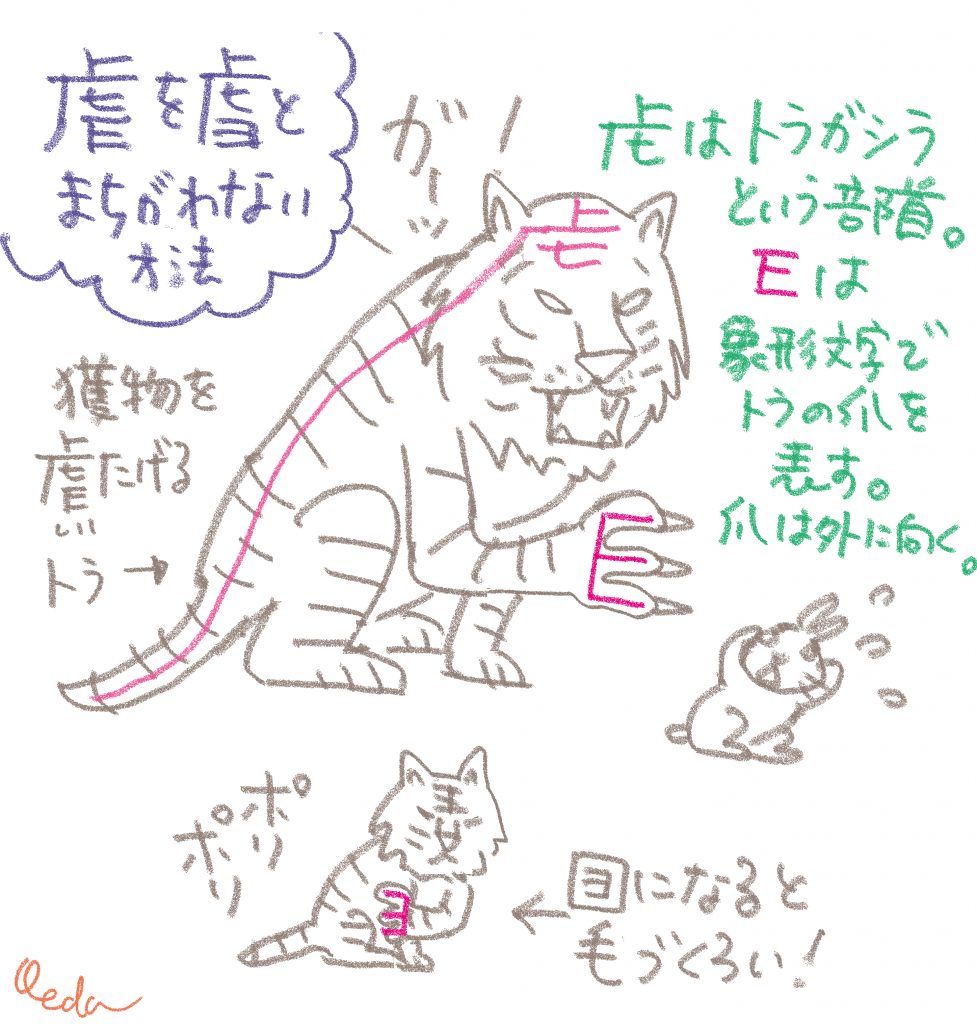 虐を虐と
まちがわない
方法
ガーッ!
虍はトラガシラ
という部首。
Eは
象形文字で
トラの爪を
表す。
爪は外に向く。
獲物を
虐たげる
トラ→
虍
E
ポリ
ポリ
ヨ
←ヨになると
毛づくろい!
Oeda